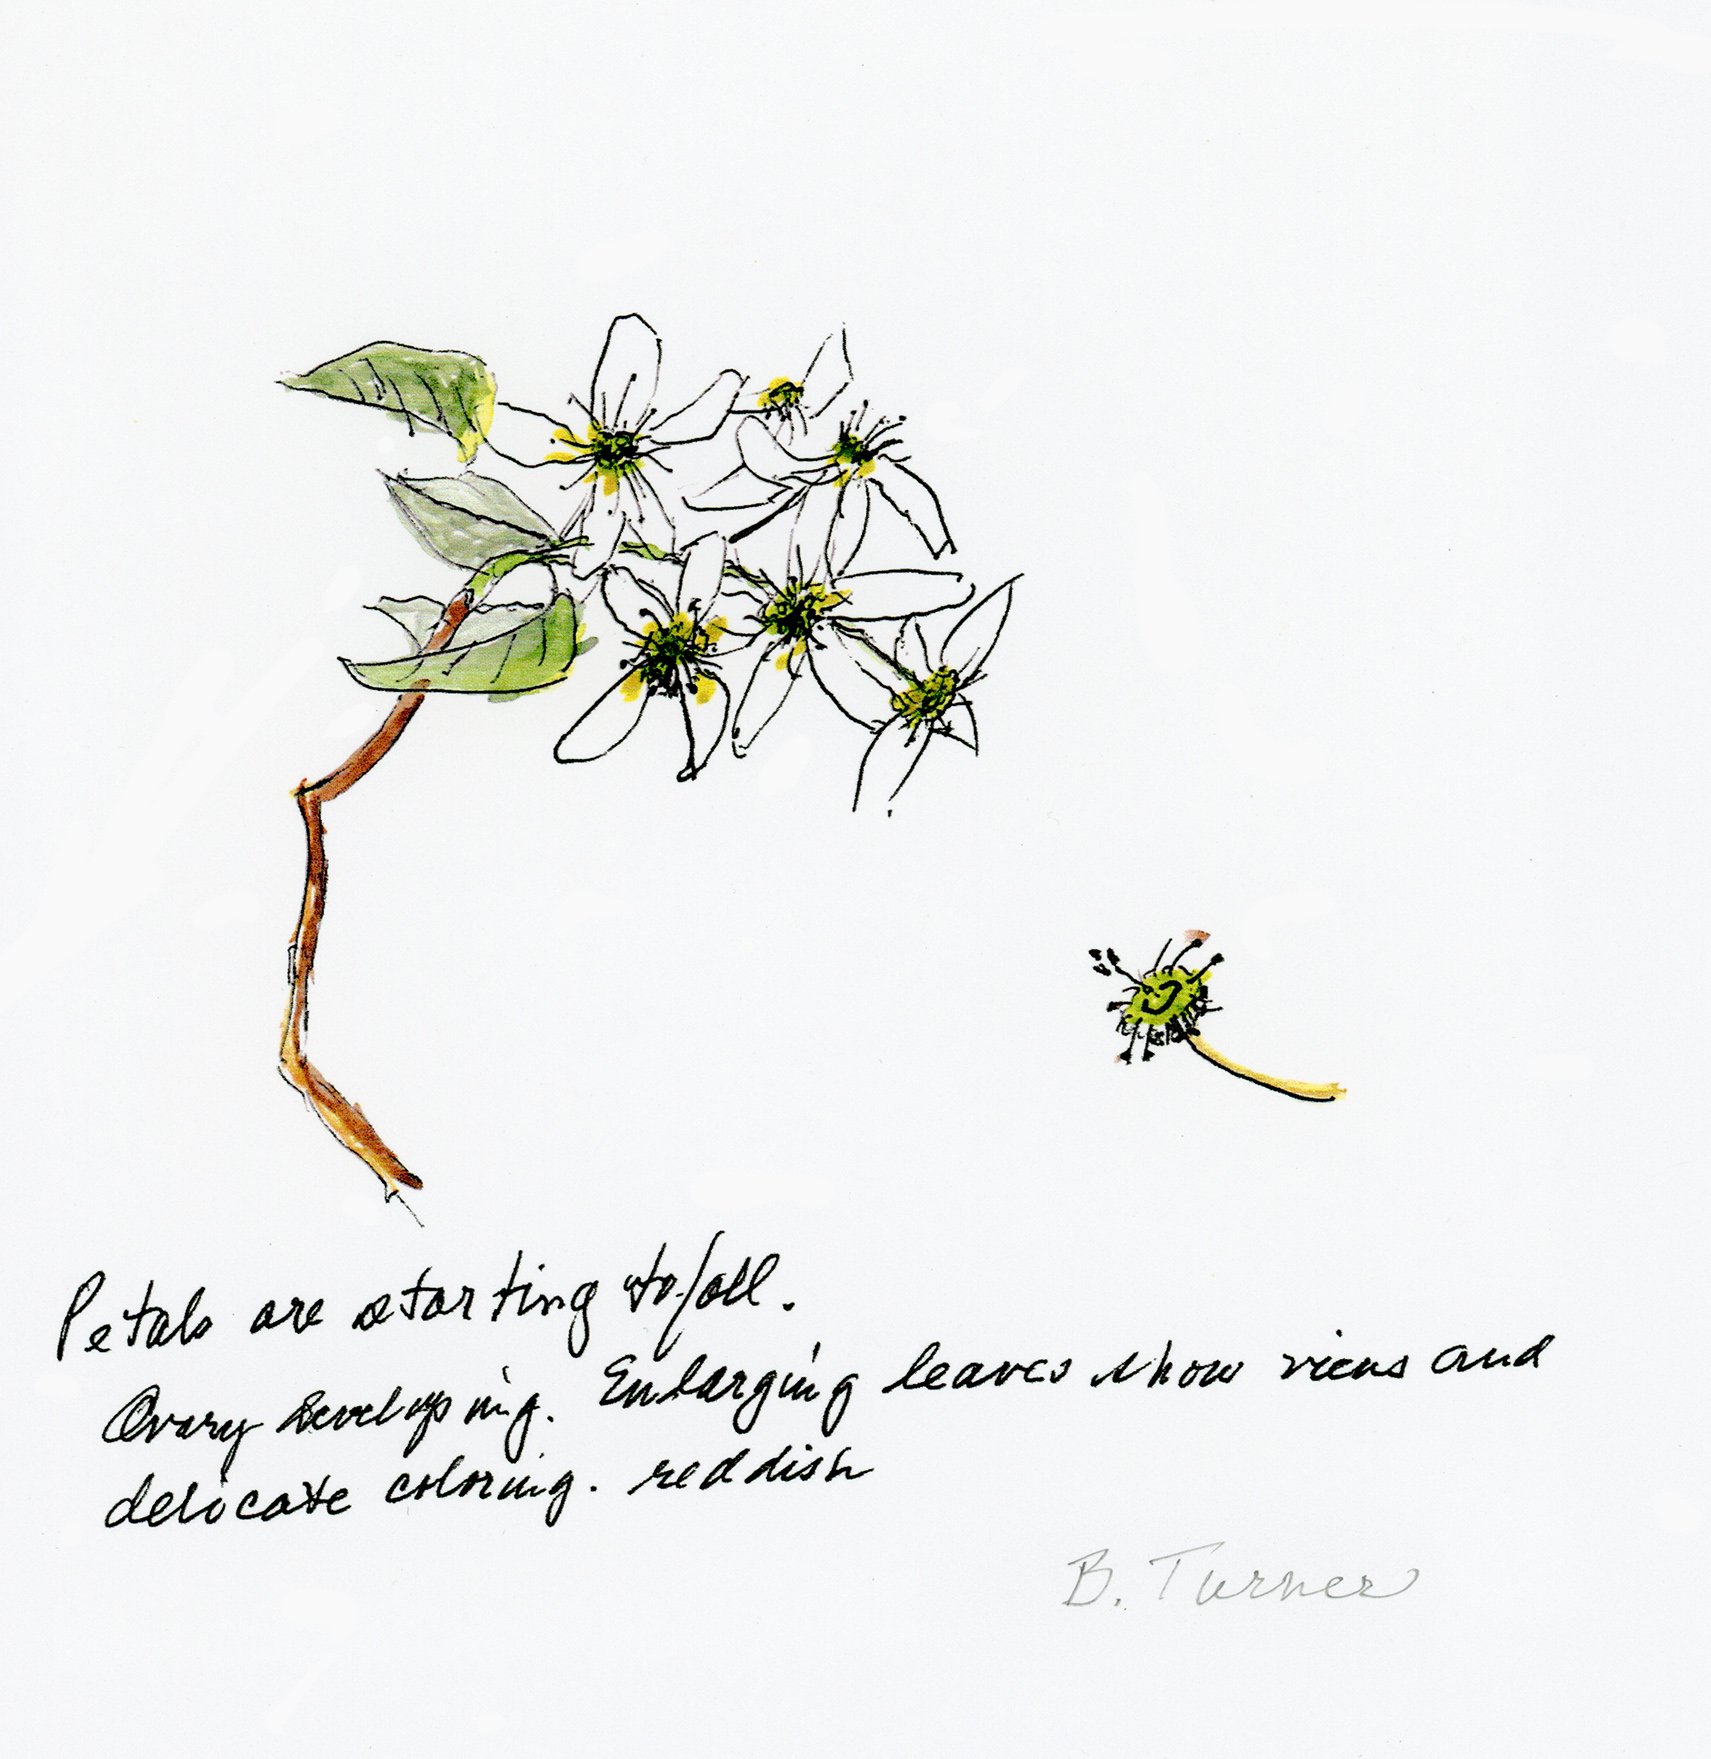 Petals are starting to fall.
Ovary developing. Enlarging leaves show viens and
delicate coloring. reddish
B. Turner